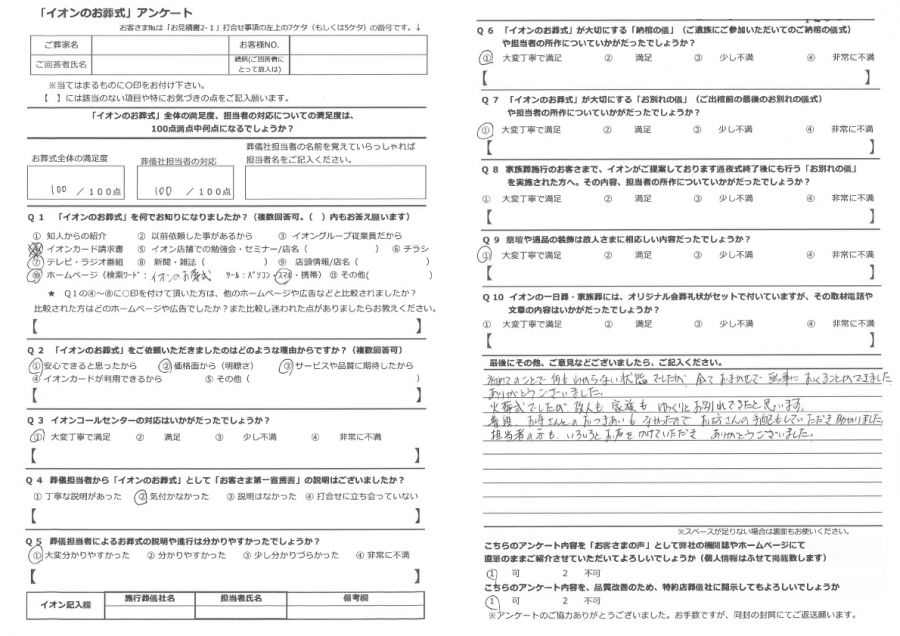 「イオンのお葬式」アンケート
お客さま№は「お見積書2-1」打合せ事項の左上の7ケタ（もしくは5ケタ）の番号です。↓
ご葬家名
お客様NO.
ご回答者氏名
続柄(ご回答者にとって故人は)
※当てはまるものに○印をお付け下さい。
【　】には該当のない項目や特にお気づきの点をご記入願います。
「イオンのお葬式」全体の満足度、担当者の対応についての満足度は、
100点満点中何点になるでしょうか？
お葬式全体の満足度
葬儀社担当者の対応
葬儀社担当者の名前を覚えていらっしゃれば
担当者名をご記入ください。
100 ／100点
100 ／100点
Q 1 「イオンのお葬式」を何でお知りになりましたか？（複数回答可。（　）内もお答え願います）
① 知人からの紹介 ② 以前依頼した事があるから ③ イオングループ従業員だから
④ イオンカード請求書 ⑤ イオン店舗での勉強会・セミナー/店名（　） ⑥ チラシ
⑦ テレビ・ラジオ番組 ⑧ 新聞・雑誌（　） ⑨ 店頭情報/店名（　）
⑩ ホームページ（検索ﾜｰﾄﾞ：イオンのお葬式 ﾂｰﾙ：ﾊﾟｿｺﾝ・ｽﾏﾎ・携帯） ⑪ その他(　)
★ Q1の④～⑩に○印を付けて頂いた方は、他のホームページや広告などと比較されましたか？
比較された方はどのホームページや広告でしたか？また比較し迷われた点がありましたらお教えください。
【　】
Q 2 「イオンのお葬式」をご依頼いただきましたのはどのような理由からですか？（複数回答可）
① 安心できると思ったから ② 価格面から（明瞭さ） ③ サービスや品質に期待したから
④ イオンカードが利用できるから ⑤ その他（　）
【　】
Q 3 イオンコールセンターの対応はいかがだったでしょうか？
① 大変丁寧で満足 ② 満足 ③ 少し不満 ④ 非常に不満
【　】
Q 4 葬儀担当者から「イオンのお葬式」として「お客さま第一宣言書」の説明はございましたか？
① 丁寧な説明があった ② 気付かなかった ③ 説明はなかった ④ 打合せに立ち会っていない
【　】
Q 5 葬儀担当者によるお葬式の説明や進行は分かりやすかったでしょうか？
① 大変分かりやすかった ② 分かりやすかった ③ 少し分りづらかった ④ 非常に不満
【　】
イオン記入欄
施行葬儀社名
担当者氏名
備考欄
Q 6 「イオンのお葬式」が大切にする「納棺の儀」（ご遺族にご参加いただいてのご納棺の儀式）
や担当者の所作についていかがだったでしょうか？
① 大変丁寧で満足 ② 満足 ③ 少し不満 ④ 非常に不満
【　】
Q 7 「イオンのお葬式」が大切にする「お別れの儀」（ご出棺前の最後のお別れの儀式）
や担当者の所作についていかがだったでしょうか？
① 大変丁寧で満足 ② 満足 ③ 少し不満 ④ 非常に不満
【　】
Q 8 家族葬施行のお客さまで、イオンがご提案しております通夜式終了後にも行う「お別れの儀」
を実施された方へ。その内容、担当者の所作についていかがだったでしょうか？
① 大変丁寧で満足 ② 満足 ③ 少し不満 ④ 非常に不満
【　】
Q 9 祭壇や遺品の装飾は故人さまに相応しい内容だったでしょうか？
① 大変丁寧で満足 ② 満足 ③ 少し不満 ④ 非常に不満
【　】
Q 10 イオンの一日葬・家族葬には、オリジナル会葬礼状がセットで付いていますが、その取材電話や
文章の内容はいかがだったでしょうか？
① 大変丁寧で満足 ② 満足 ③ 少し不満 ④ 非常に不満
【　】
最後にその他、ご意見などございましたら、ご記入ください。
初めてのことで何もわからない状態でしたが 全ておまかせで 無事におくることができました
ありがとうございました。
火葬式でしたが 故人も 家族も ゆっくりとお別れできたと思います。
普段 お寺さんとのおつきあいもなかったので お坊さんの手配もしていただき助かりました。
担当者の方も いろいろとお声をかけていただき ありがとうございました。
※スペースが足りない場合は裏面もお使いください。
こちらのアンケート内容を「お客さまの声」として弊社の機関誌やホームページにて
直筆のままご紹介させていただいてよろしいでしょうか（個人情報はふせて掲載致します）
1 可 2 不可
こちらのアンケート内容を、品質改善のため、特約店葬儀社に開示してもよろしいでしょうか
1 可 2 不可
※アンケートのご協力ありがとうございました。お手数ですが、同封の封筒にてご返送願います。